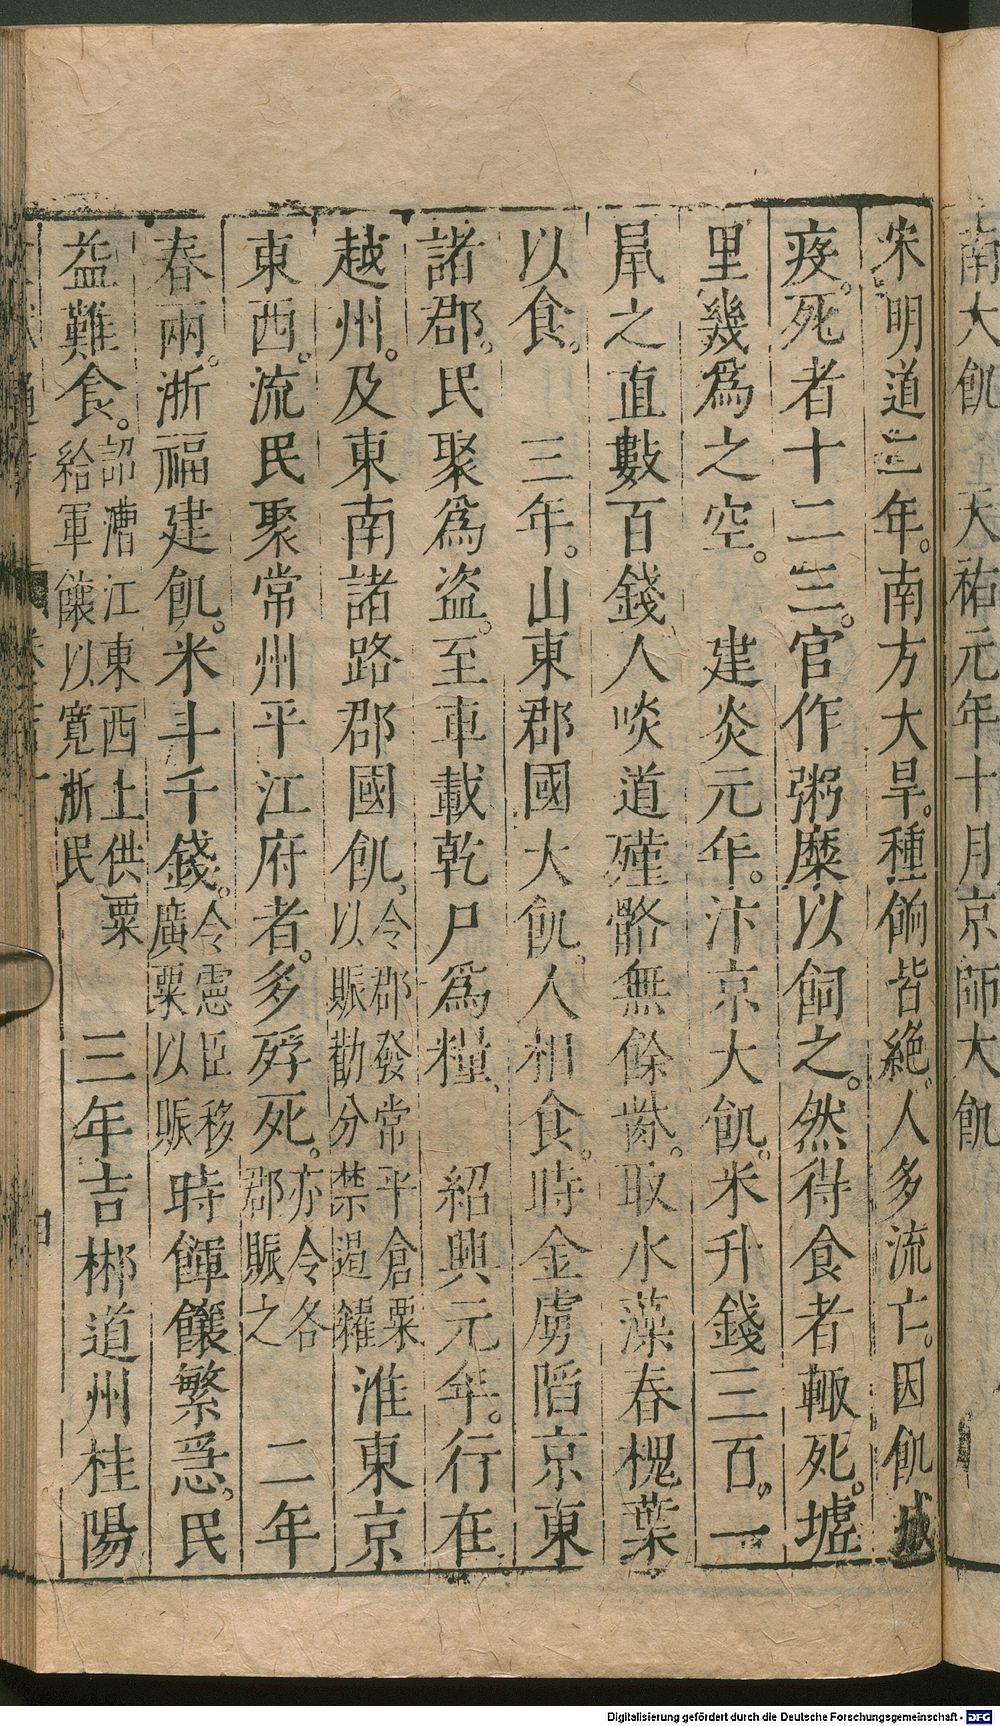 南大飢 天祐元年十月京師大飢
宋明道二年。南方大旱。種餉皆絶。人多流亡。因飢成
疫。死者十二三。官作粥糜以飼之。然得食者輙死。墟
里幾爲之空。 建炎元年。汴京大飢。米升錢三百。一
鼠之直數百錢。人啖道殣骼無餘胔。取水藻春槐葉
以食。 三年。山東郡國大飢。人相食。時金虜陷京東
諸郡。民聚爲盗。至車載乾尸爲糧。 紹興元年。行在
越州。及東南諸路郡國飢。令郡發常平倉粟以賑勸分禁遏糴淮東京
東西。流民聚常州平江府者。多殍死。亦令各郡賑之 二年
春兩。浙福建飢。米斗千錢。令憲臣移廣粟以賑時餫饟繁急。民
益難食。詔漕江東西上供粟給軍饟以寬浙民 三年吉郴道州桂陽
Digitalisierung gefördert durch die Deutsche Forschungsgemeinschaft - DFG